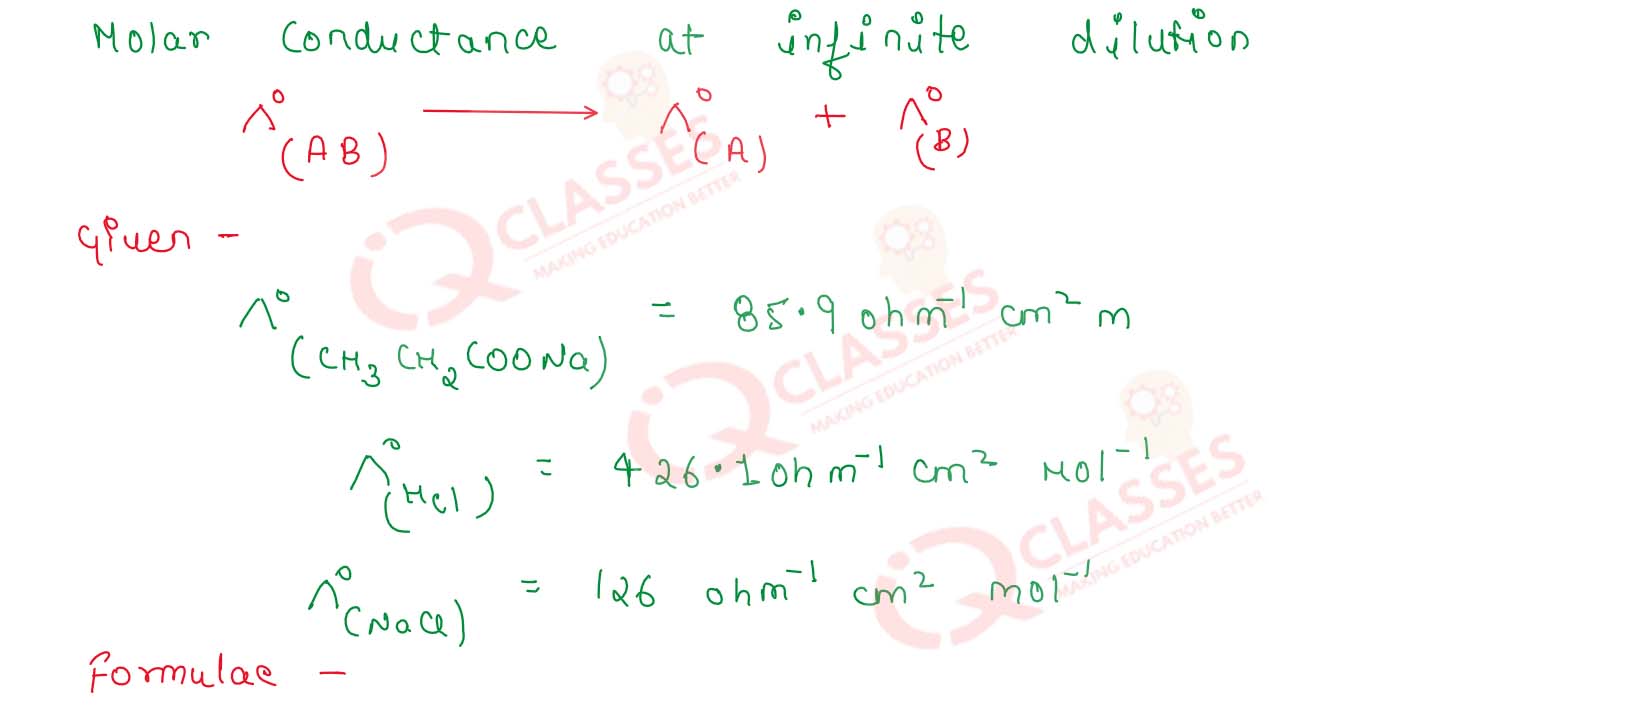 Molar Conductance at infinite dilution
Λ°(AB) ⟶ Λ°(A) + Λ°(B)
Given -
Λ°(CH₃CH₂COONa) = 85.9 ohm⁻¹ cm² m
Λ°(HCl) = 426.1 ohm⁻¹ cm² Mol⁻¹
Λ°(NaCl) = 126 ohm⁻¹ cm² mol⁻¹
Formulae -
iQ CLASSES
MAKING EDUCATION BETTER
iQ CLASSES
MAKING EDUCATION BETTER
iQ CLASSES
MAKING EDUCATION BETTER